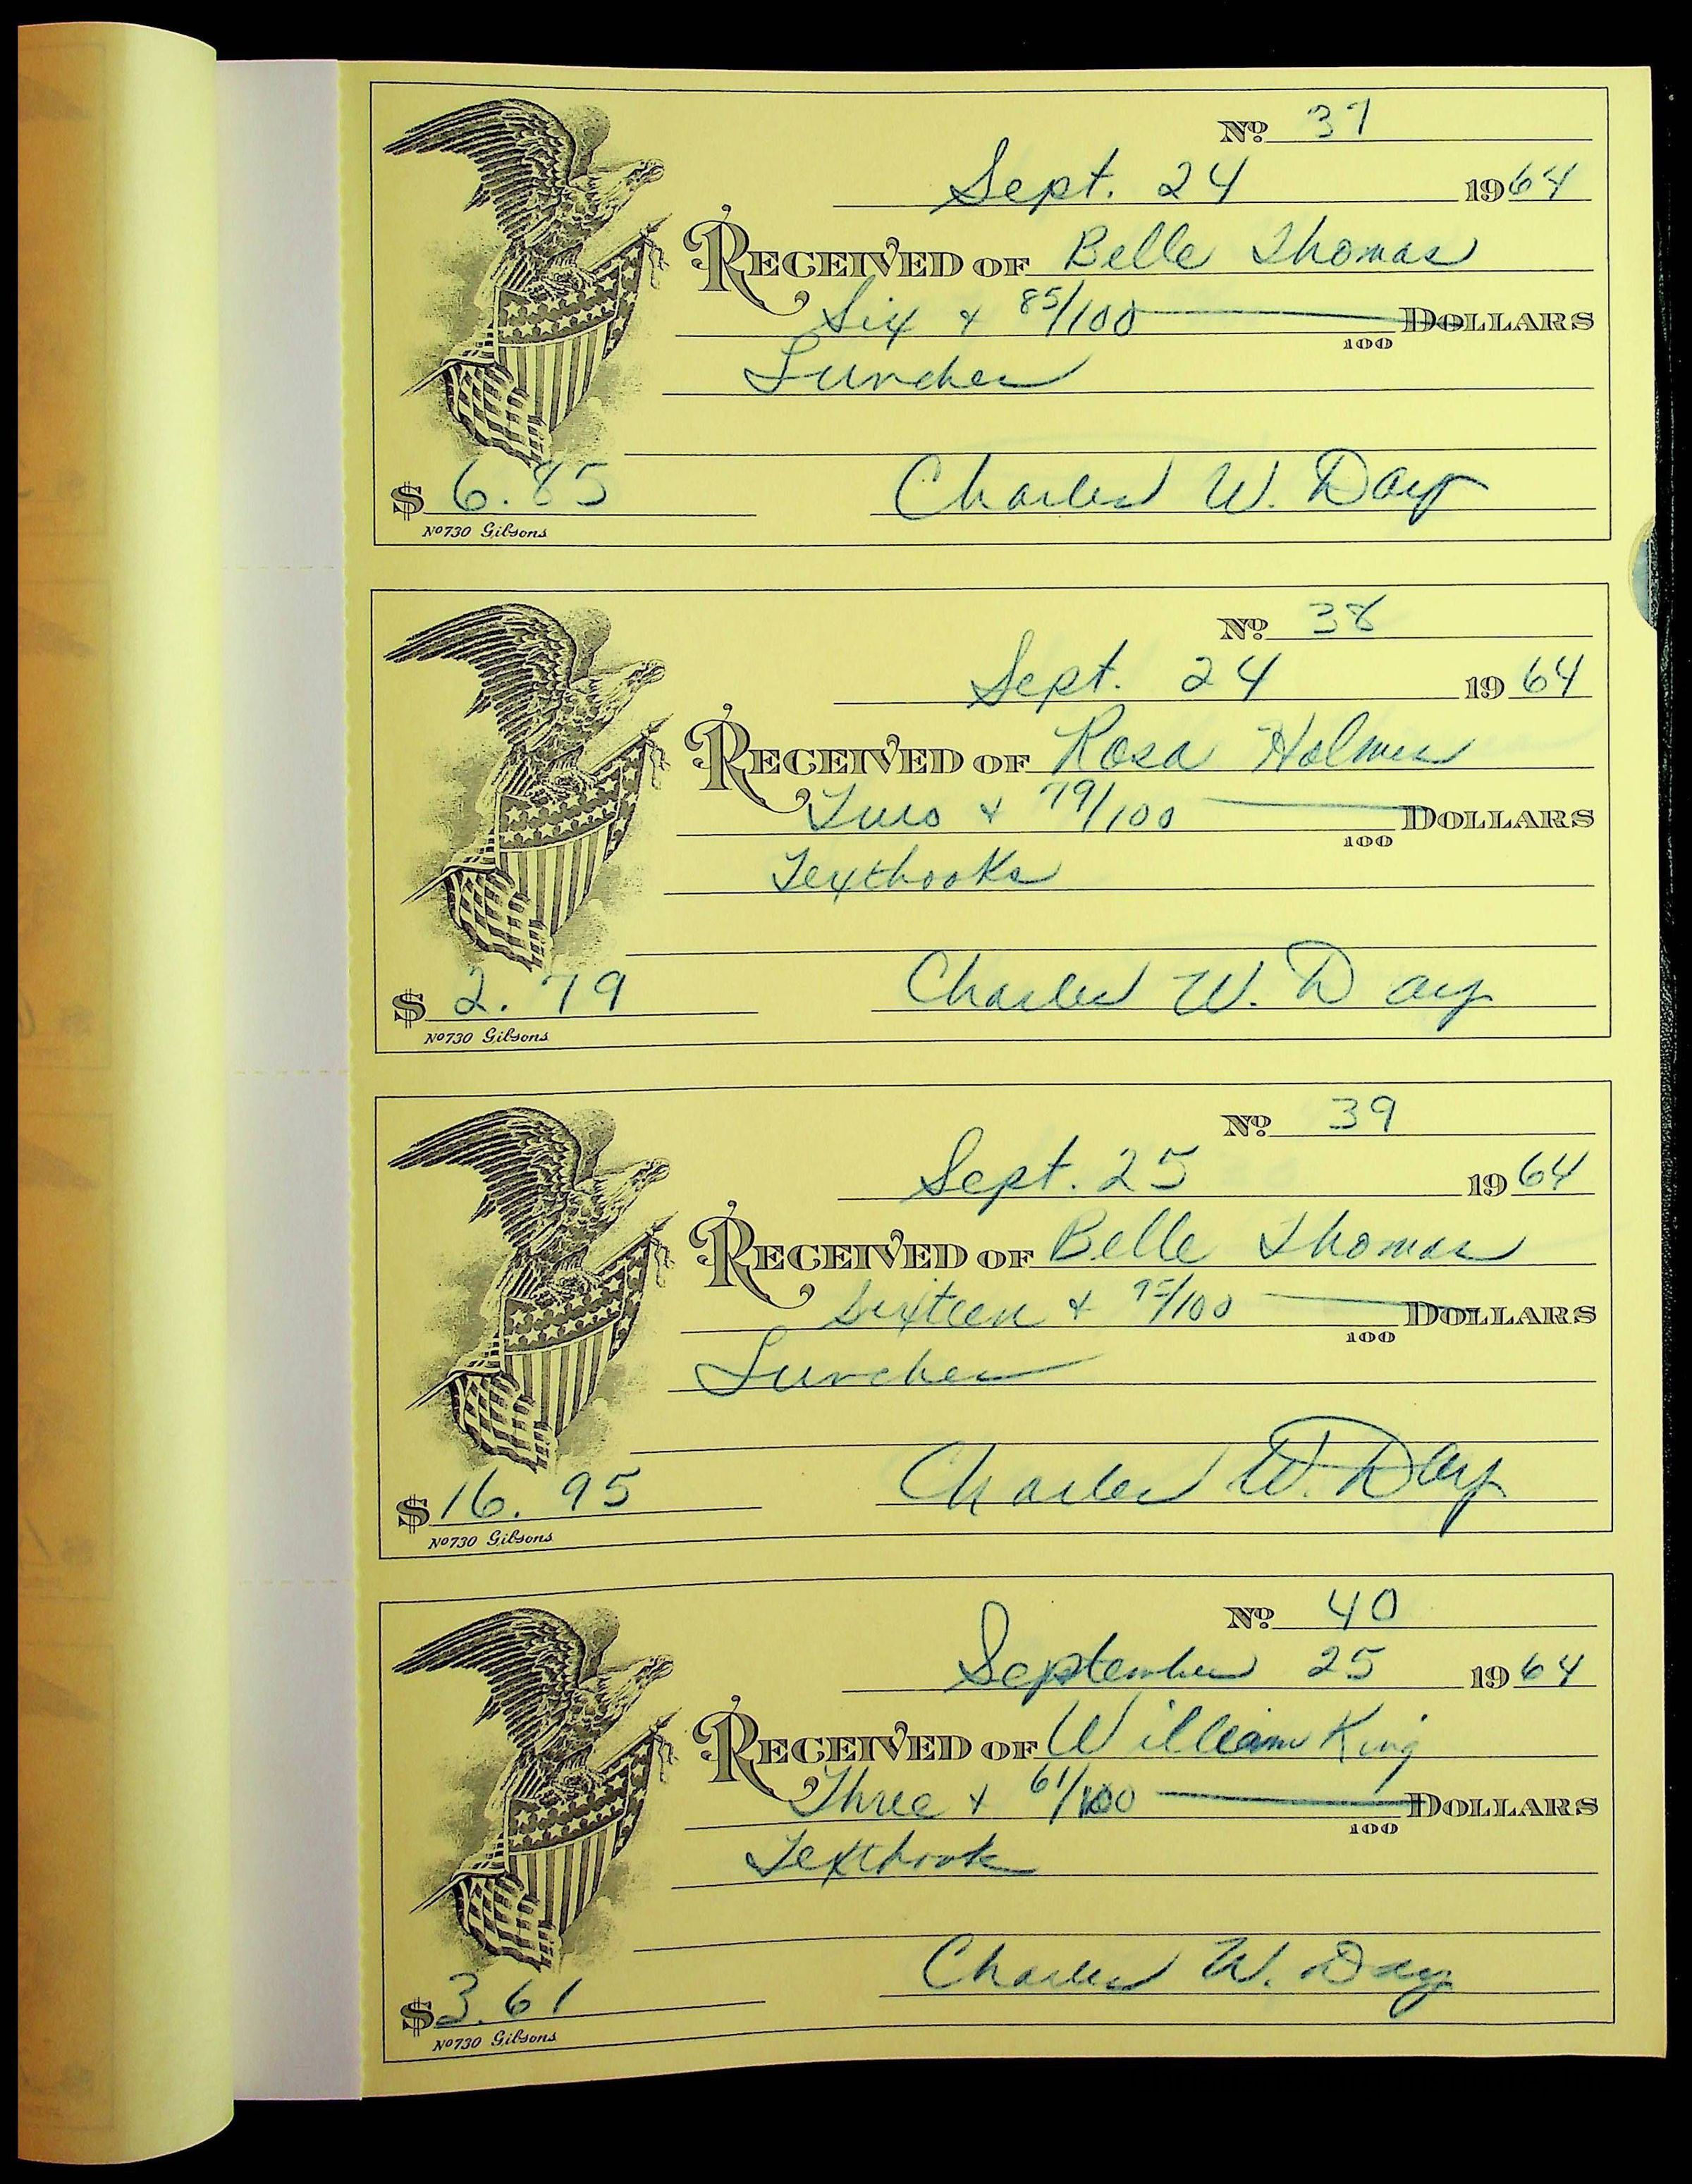 No. 37
Sept. 24 1964
RECEIVED OF Belle Thomas
Six + 85/100 DOLLARS
100
Lunches
$ 6.85 Charles W. Day
No 730 Gibsons
No. 38
Sept. 24 1964
RECEIVED OF Rosa Holmes
Two + 79/100 DOLLARS
100
Textbooks
$ 2.79 Charles W. Day
No 730 Gibsons
No. 39
Sept. 25 1964
RECEIVED OF Belle Thomas
Sixteen + 95/100 DOLLARS
100
Lunches
$ 16.95 Charles W. Day
No 730 Gibsons
No. 40
September 25 1964
RECEIVED OF William King
Three + 61/100 DOLLARS
100
Textbook
$ 3.61 Charles W. Day
No 730 Gibsons